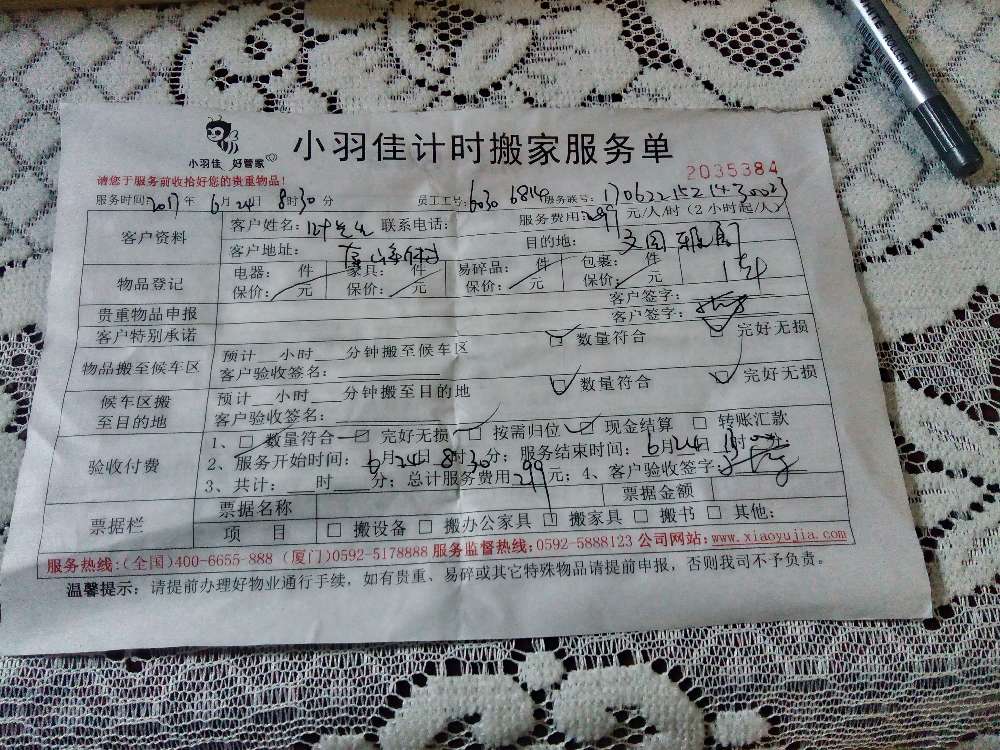 小羽佳 好管家
小羽佳计时搬家服务单
2035384
请您于服务前收拾好您的贵重物品!
服务时间:2017年6月24日8时30分 员工工号:6030 6814 服务账号:1706221521430023
客户资料
客户姓名:叶先生 联系电话: 服务费用:299元/人/时(2小时起/人)
客户地址: 目的地:文园
物品登记
电器: 件 家具: 件 易碎品: 件 包裹: 件
保价: 元 保价: 元 保价: 元 保价: 元
贵重物品申报 客户签字:
客户特别承诺 客户签字:
物品搬至候车区
预计__小时___分钟搬至候车区 数量符合 完好无损
客户验收签名:
候车区搬至目的地
预计__小时___分钟搬至目的地 数量符合 完好无损
客户验收签名:
验收付费
1、 数量符合 完好无损 按需归位 现金结算 转账汇款
2、服务开始时间:6月24日8时30分;服务结束时间:6月24日 时 分
3、共计:__时___分;总计服务费用299元;4、客户验收签字:
票据栏
票据名称 票据金额
项 目 搬设备 搬办公家具 搬家具 搬书 其他:
服务热线:(全国)400-6655-888 (厦门)0592-5178888 服务监督热线:0592-5888123 公司网站:www.xiaoyujia.com
温馨提示:请提前办理好物业通行手续,如有贵重、易碎或其它特殊物品请提前申报,否则我司不予负责。